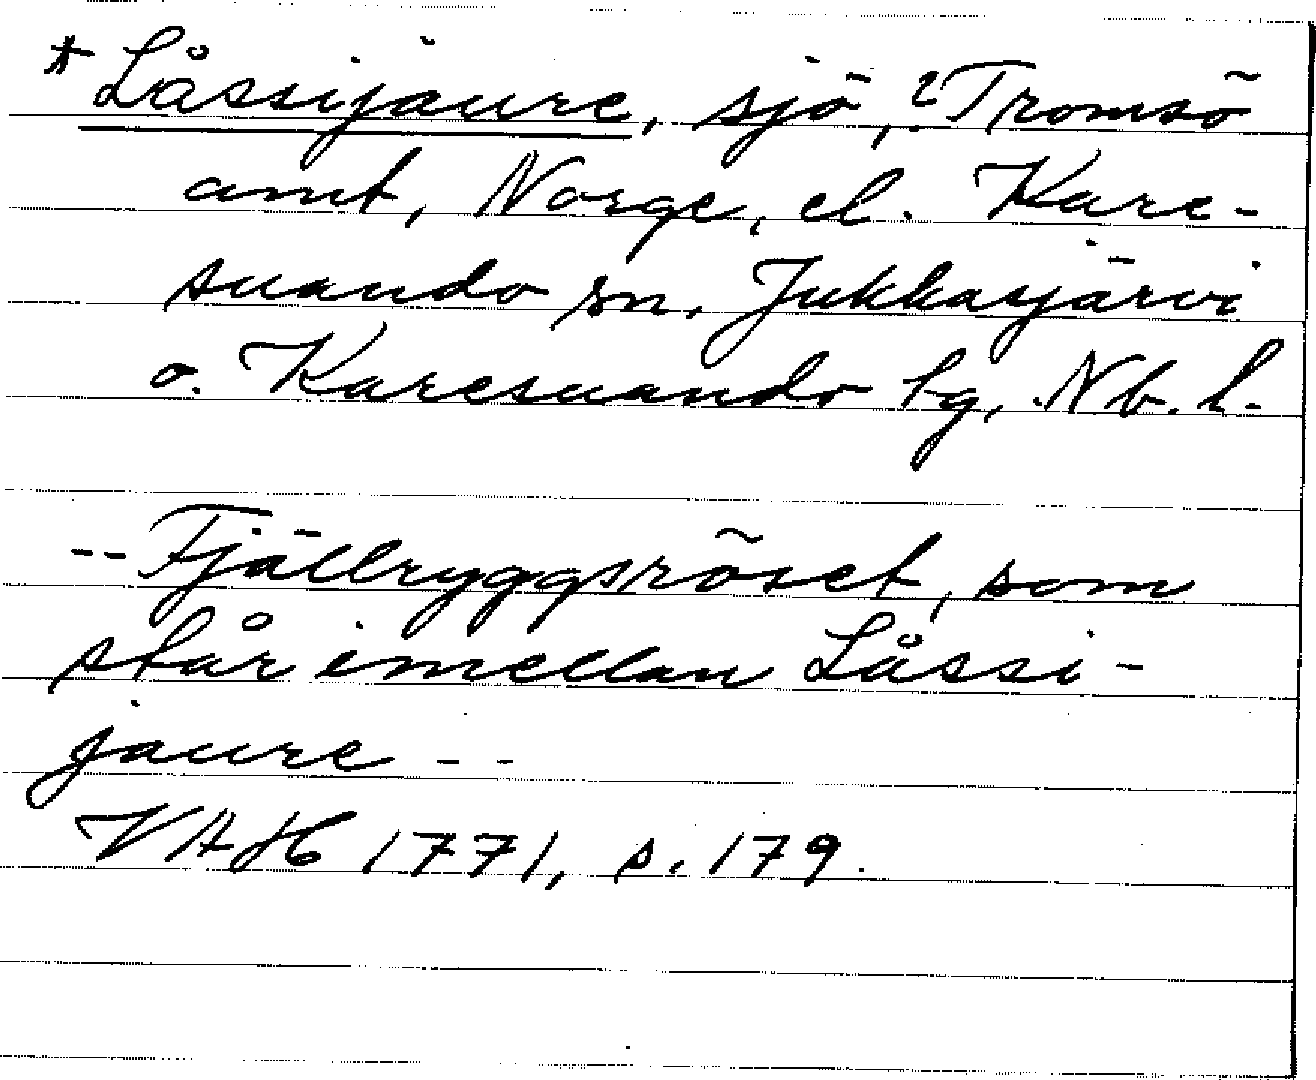 * Låssijaure, sjö, ? Tromsö
amt, Norge, el. Kare-
suando sn. Jukkasjärvi
o. Karesuando tg, Nb. l.
-- Fjällryggsröset, som
står imellan Låssi-
jaure --
VAH 1771, s. 179.